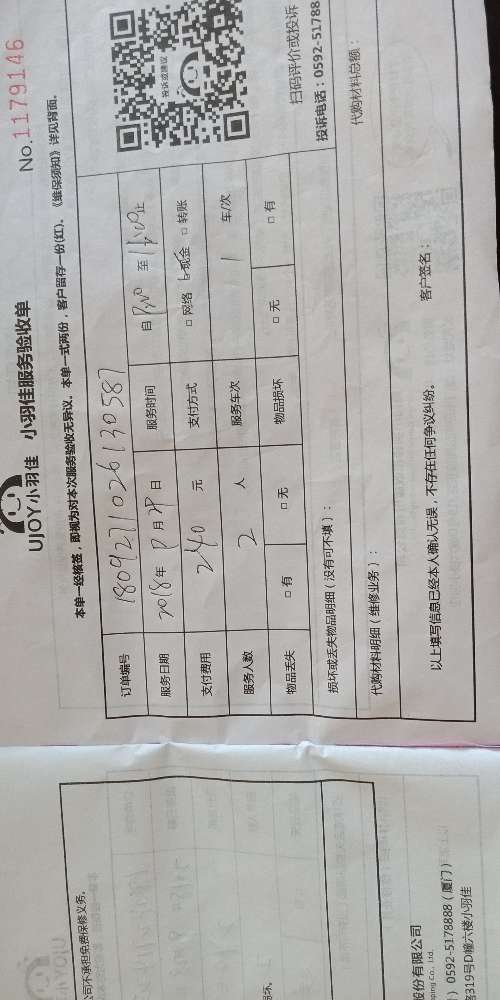 No.1179146
UJOY小羽佳 小羽佳服务验收单
本单一经核签，即视为对本次服务验收无异议。本单一式两份，客户留存一份(红)。《维保须知》详见背面。
订单编号 180927102613058７
服务日期 2018年9月29日 服务时间 自 至 止
支付费用 240元 支付方式 □网络 □现金 □转账
服务人数 2人 服务车次 1 车/次
物品丢失 □有 □无 物品损坏 □无 □有
投诉或建议
扫码评价或投诉
投诉电话：0592-51788
损坏或丢失物品明细（没有可不填）：
代购材料明细（维修业务）： 代购材料总额：
以上填写信息已经本人确认无误，不存在任何争议纠纷。 客户签名：
公司不承担免费保修义务。
损坏。
股份有限公司
ping Co., Ltd.
）0592-5178888（厦门）
路319号D幢六楼小羽佳